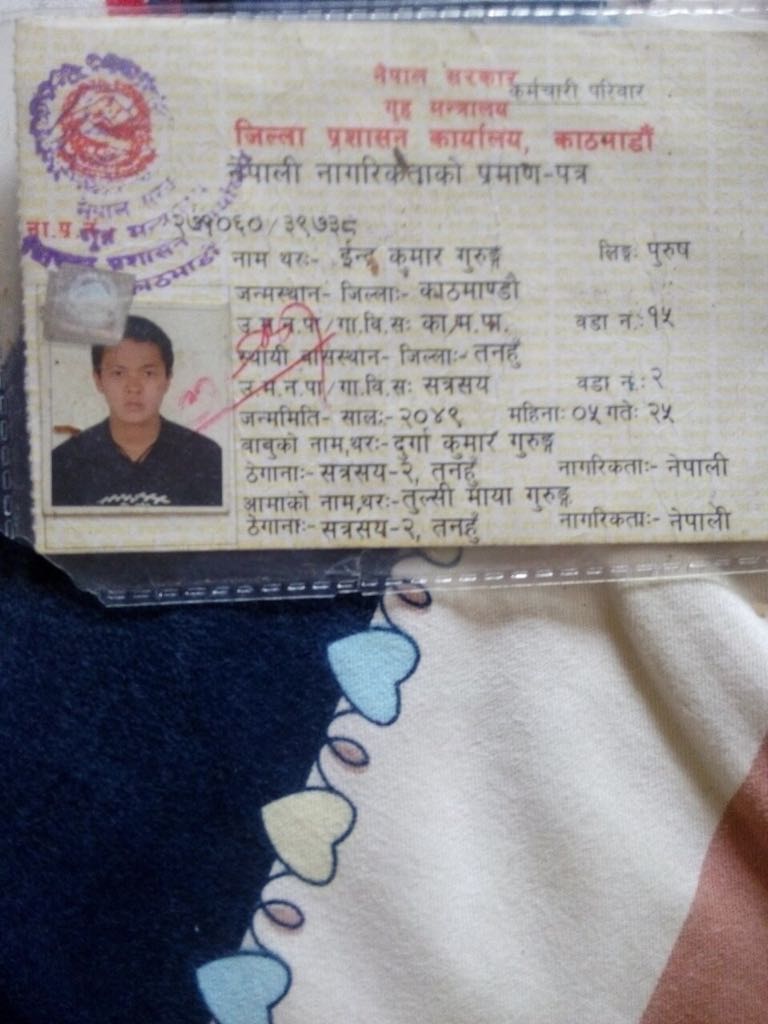 नेपाल सरकार
कर्मचारी परिवार
गृह मन्त्रालय
जिल्ला प्रशासन कार्यालय, काठमाडौं
नेपाली नागरिकताको प्रमाण-पत्र
ना.प.नं. २७१०६०/३९७३८
नाम थरः- ईन्द्र कुमार गुरुङ्ग लिङ्गः पुरुष
जन्मस्थान- जिल्लाः- काठमाण्डौ
उ.म.न.पा/गा.वि.सः का.म.पा. वडा नं.: १५
स्थायी बासस्थान- जिल्लाः- तनहुँ
उ.म.न.पा/गा.वि.सः सत्रसय वडा नं.: २
जन्ममिति- सालः- २०४९ महिनाः ०५ गतेः २५
बाबुको नाम,थरः- दुर्गा कुमार गुरुङ्ग
ठेगानाः- सत्रसय-२, तनहुँ नागरिकताः- नेपाली
आमाको नाम,थरः- तुल्सी माया गुरुङ्ग
ठेगानाः- सत्रसय-२, तनहुँ नागरिकताः- नेपाली